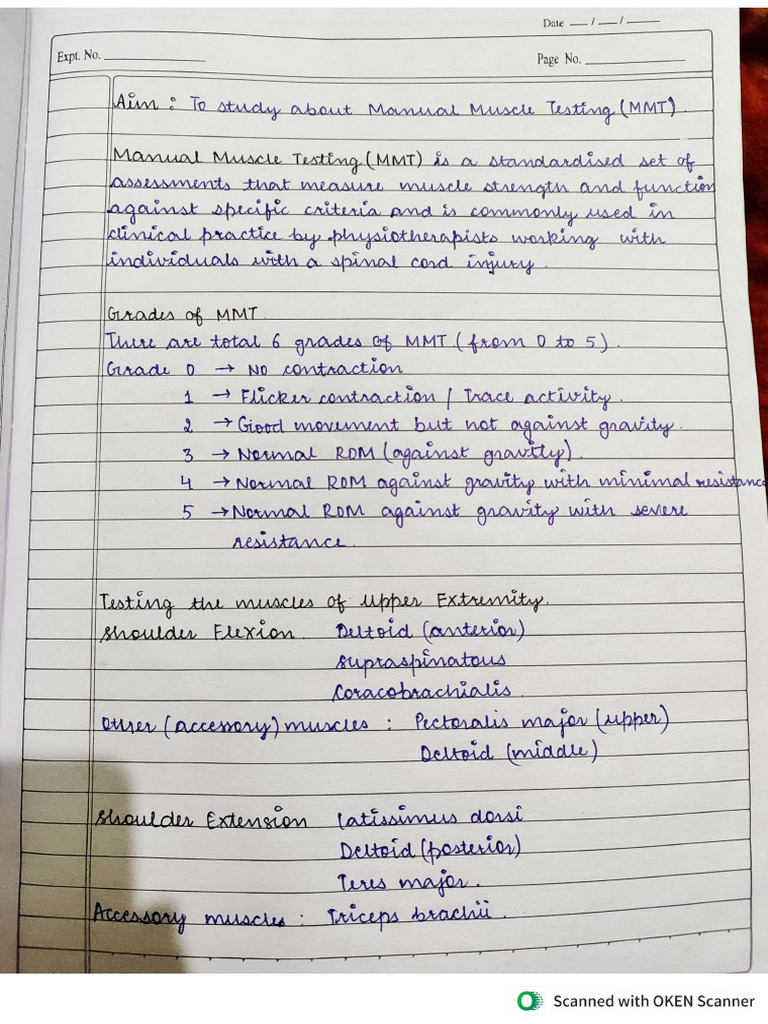 Date __/__/____
Expt. No. ____________
Page No. ____________
Aim : To study about Manual Muscle Testing (MMT)
Manual Muscle Testing (MMT) is a standardised set of
assessments that measure muscle strength and function
against specific criteria and is commonly used in
clinical practice by physiotherapists working with
individuals with a spinal cord injury.
Grades of MMT
There are total 6 grades of MMT (from 0 to 5).
Grade 0 → No contraction
1 → Flicker contraction / Trace activity.
2 → Good movement but not against gravity.
3 → Normal ROM (against gravity).
4 → Normal ROM against gravity with minimal resistance
5 → Normal ROM against gravity with severe
resistance.
Testing the muscles of Upper Extremity.
Shoulder Flexion Deltoid (anterior)
Supraspinatous
Coracobrachialis.
Other (accessory) muscles : Pectoralis major (upper)
Deltoid (middle)
Shoulder Extension Latissimus dorsi
Deltoid (posterior)
Teres major.
Accessory muscles : Triceps brachii.
Scanned with OKEN Scanner